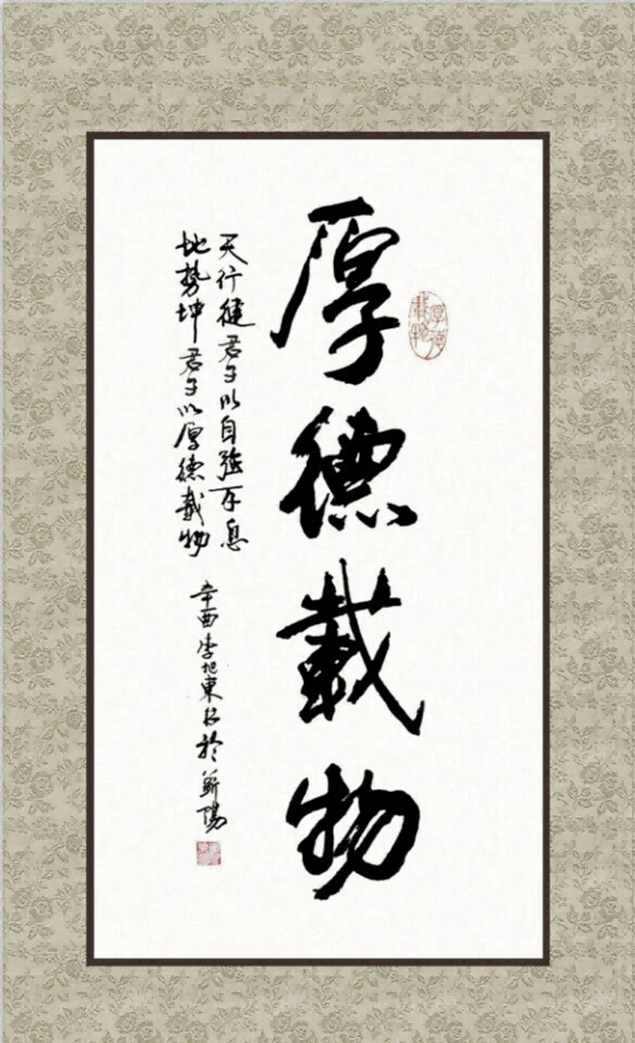 厚德載物
厚德載物
天行健君子以自強不息
地勢坤君子以厚德載物
辛酉李旭東书於蕲陽